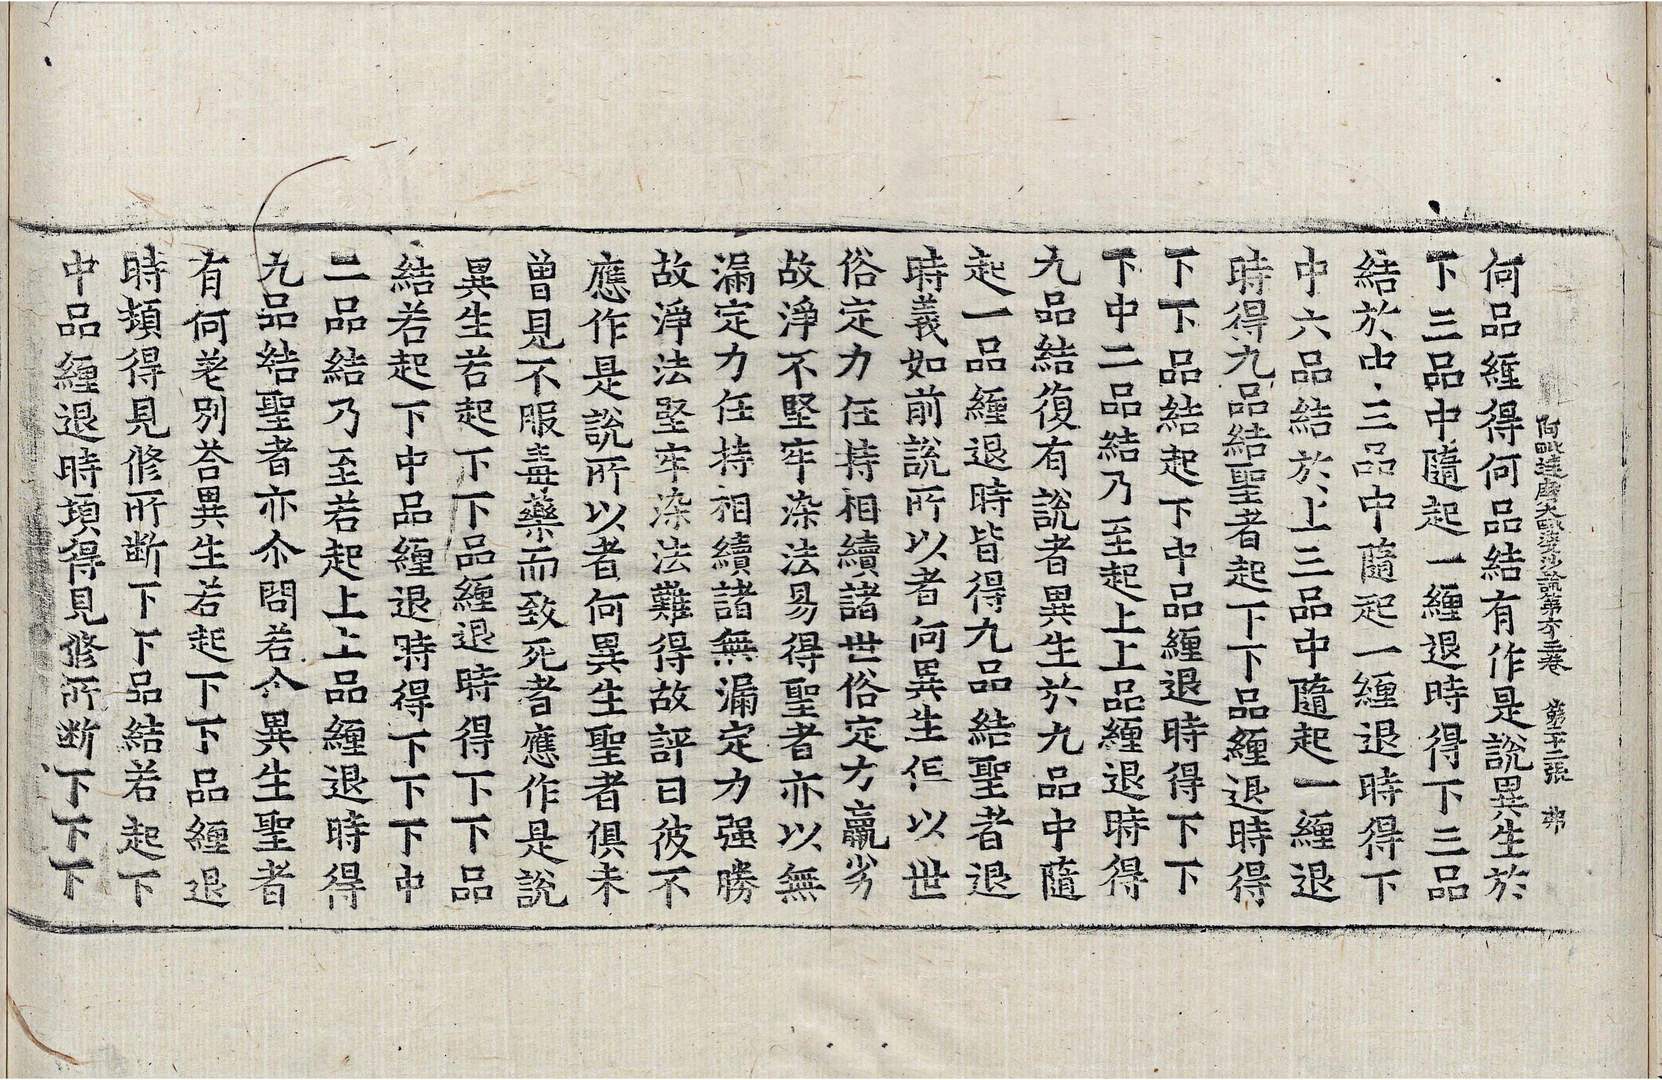 阿毗達磨大毗婆沙論第六十三卷　第十二張　弗
何品纏得何品結有作是說異生於
下三品中隨起一纏退時得下三品
結於中三品中隨起一纏退時得下
中六品結於上三品中隨起一纏退
時得九品結聖者起下下品纏退時得
下下品結起下中品纏退時得下下
下中二品結乃至起上上品纏退時得
九品結復有說者異生於九品中隨
起一品纏退時皆得九品結聖者退
時義如前說所以者何異生但以世
俗定力任持相續諸世俗定方羸劣
故淨不堅牢染法易得聖者亦以無
漏定力任持相續諸無漏定力强勝
故淨法堅牢染法難得故評曰彼不
應作是說所以者何異生聖者俱未
曾見不服毒藥而致死者應作是說
異生若起下下品纏退時得下下品
結若起下中品纏退時得下下下中
二品結乃至若起上上品纏退時得
九品結聖者亦尒問若尒異生聖者
有何差別荅異生若起下下品纏退
時頓得見修所断下下品結若起下
中品纏退時頓得見修所断下下下